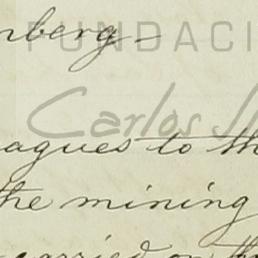 nberg-
FUNDACI
Carlos
agues to the
the mining
carried on the